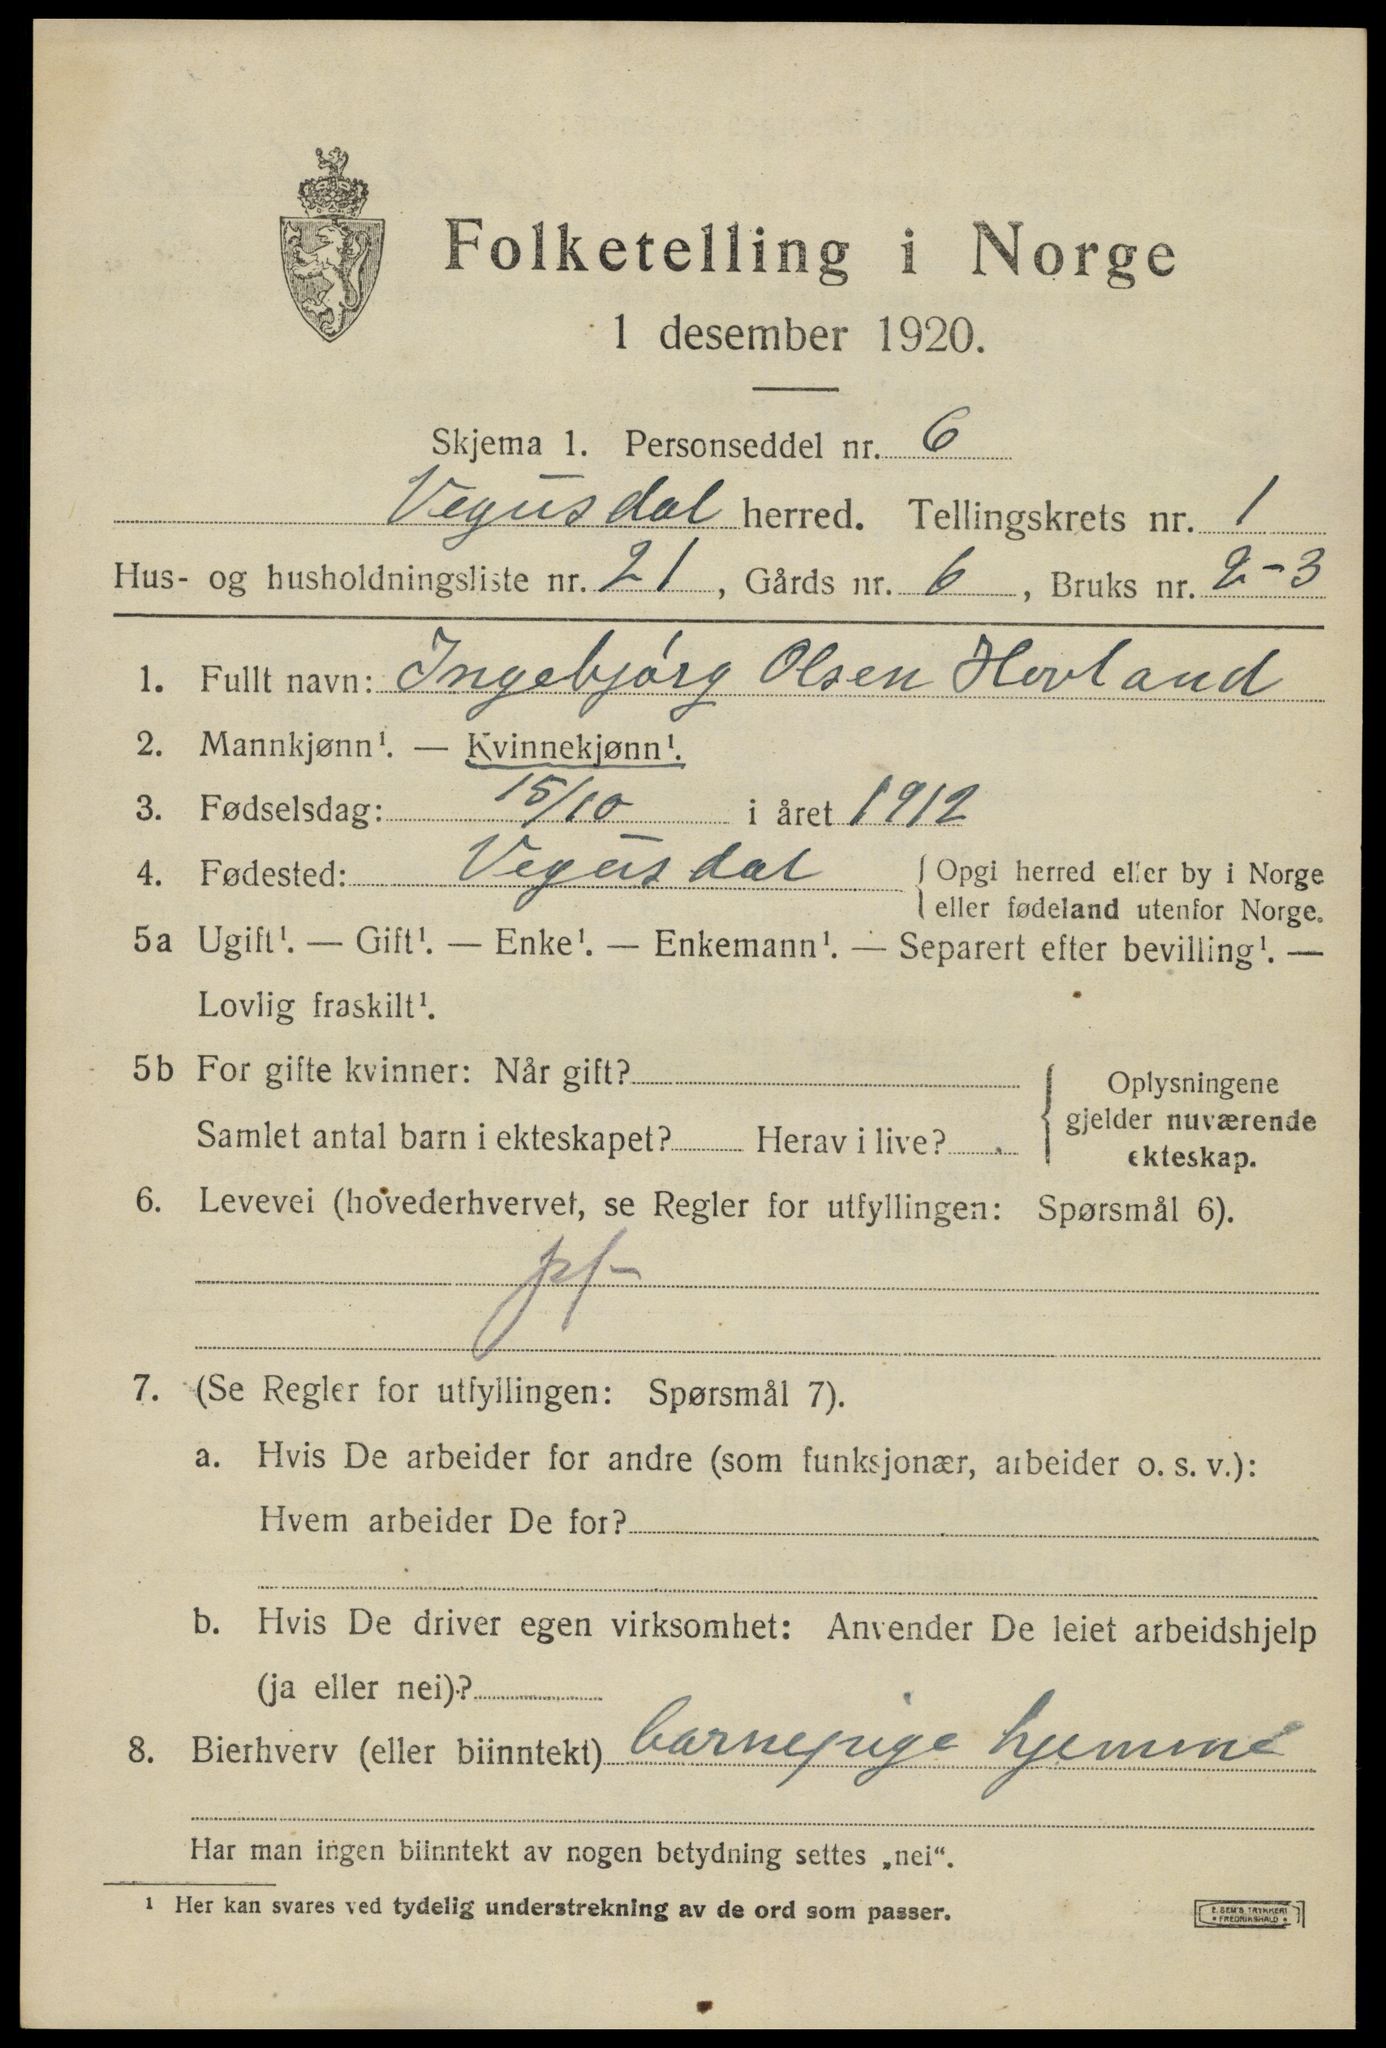 Folketelling i Norge
1 desember 1920.
Skjema 1. Personseddel nr. 6
Vegusdal herred. Tellingskrets nr. 1
Hus- og husholdningsliste nr. 21, Gårds nr. 6, Bruks nr. 2-3
1. Fullt navn: Ingebjørg Olsen Hovland
2. Mannkjønn¹. — Kvinnekjønn¹.
3. Fødselsdag: 15/10 i året 1912
4. Fødested: Vegusdal { Opgi herred eller by i Norge
eller fødeland utenfor Norge.
5a Ugift¹. — Gift¹. — Enke¹. — Enkemann¹. — Separert efter bevilling¹. —
Lovlig fraskilt¹.
5b For gifte kvinner: Når gift?
Samlet antal barn i ekteskapet? Herav i live?
{ Oplysningene
gjelder nuværende
ekteskap.
6. Levevei (hovederhvervet, se Regler for utfyllingen: Spørsmål 6).
7. (Se Regler for utfyllingen: Spørsmål 7).
a. Hvis De arbeider for andre (som funksjonær, arbeider o. s. v.):
Hvem arbeider De for?
b. Hvis De driver egen virksomhet: Anvender De leiet arbeidshjelp
(ja eller nei)?
8. Bierhverv (eller biinntekt) barnepige hjemme
Har man ingen biinntekt av nogen betydning settes „nei“.
¹ Her kan svares ved tydelig understrekning av de ord som passer.
E. SEM'S TRYKKERI
• FREDRIKSHALD •